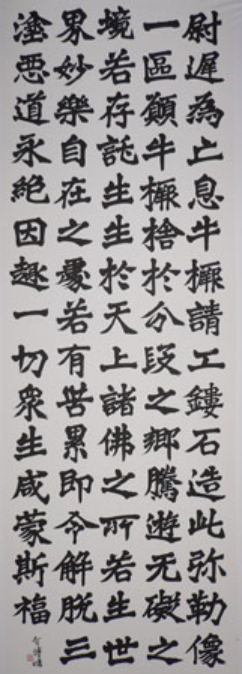 尉遲為亡息牛橛請工鏤石造此弥勒像
一區願牛橛捨於分段之鄉騰遊无礙之
境若存託生生於天上諸佛之所若生世
界妙樂自在之處若有苦累即令解脫三
塗惡道永絕因趣一切衆生咸蒙斯福